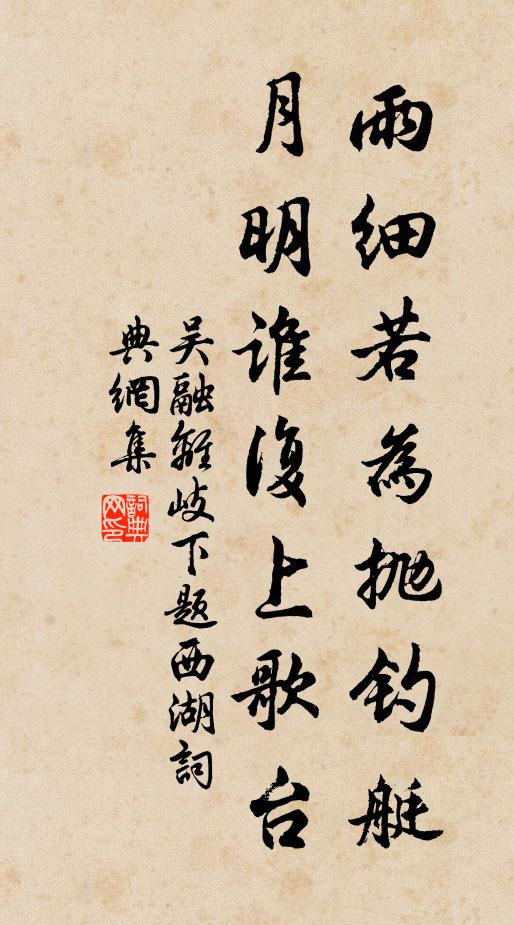 雨细若為抛钓艇
月明谁復上歌台
吴融離岐下题西湖詞
典網集
詞典網印